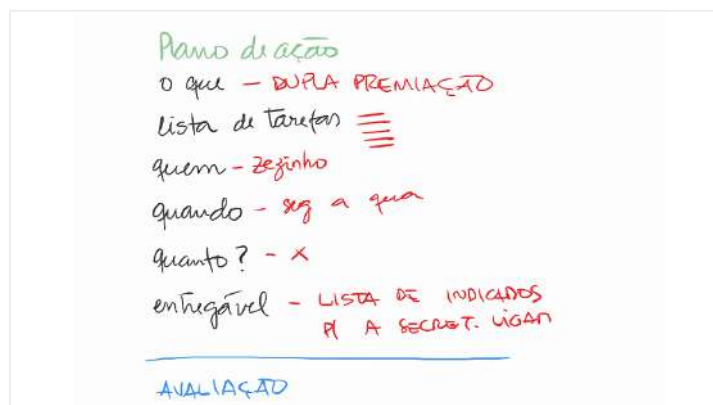 Plano de ação
o que - DUPLA PREMIAÇÃO
lista de tarefas
quem - Zezinho
quando - seg a qua
quanto? - x
entregável - LISTA DE INDICADOS
P/ A SECRET. LIGAR
AVALIAÇÃO